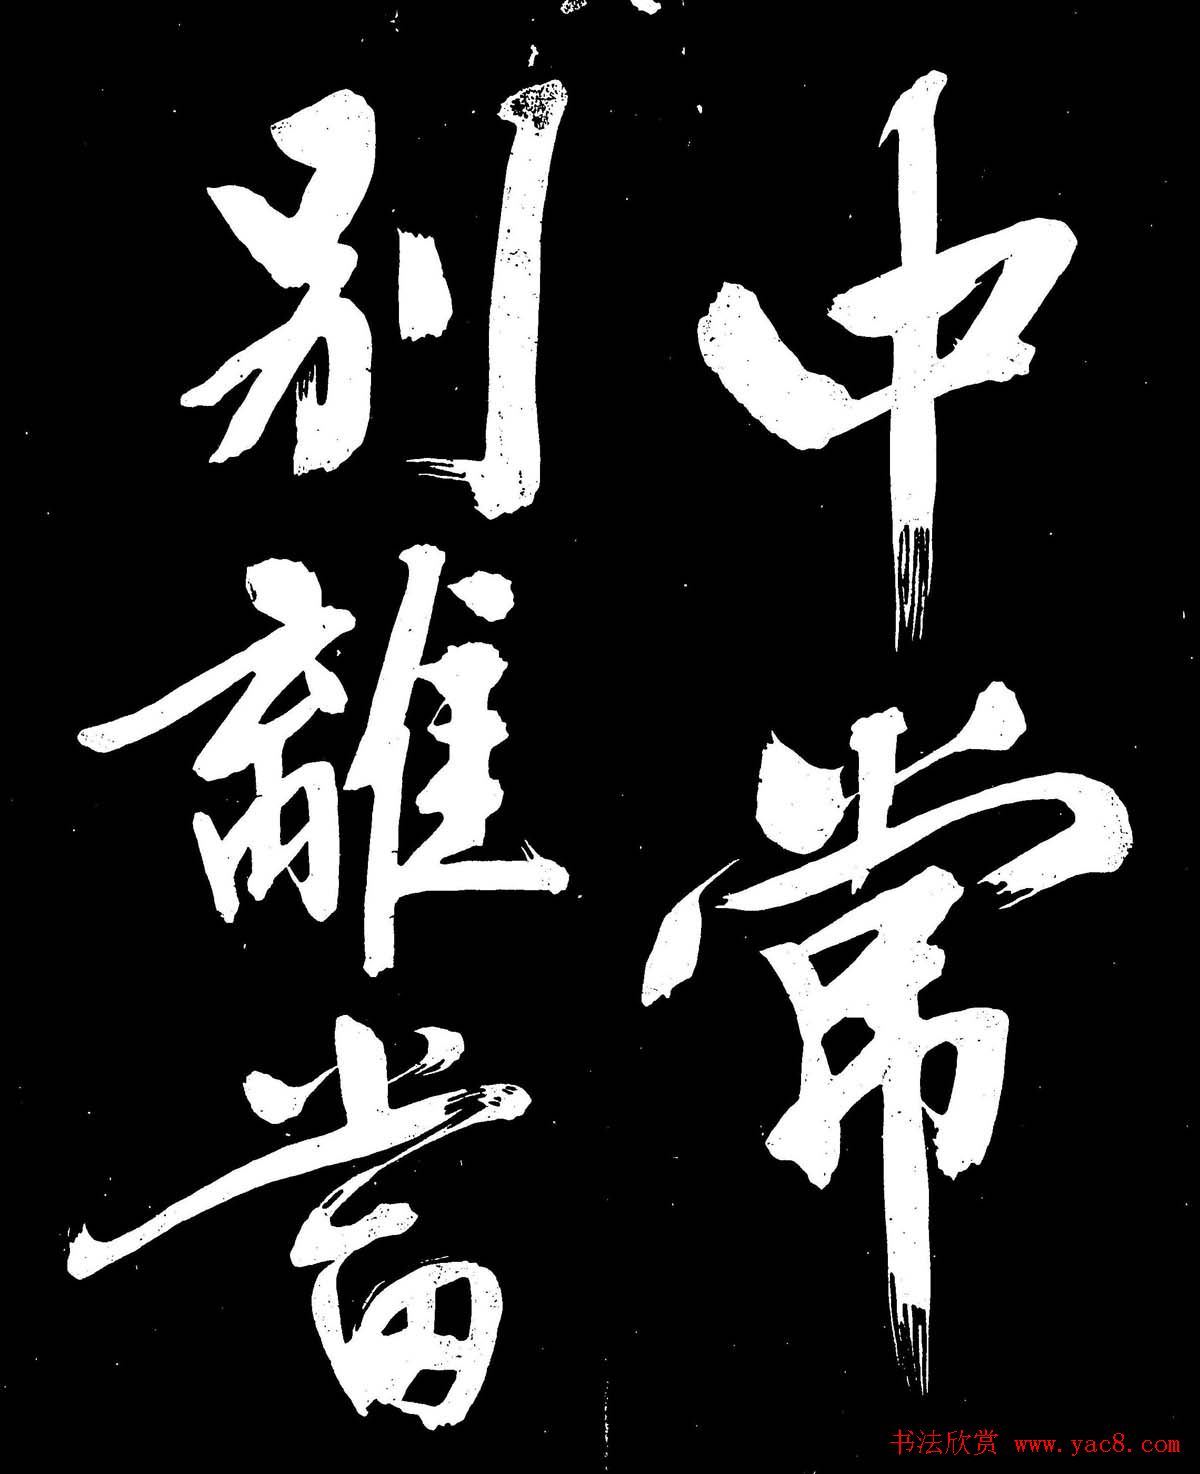 中常
别離
书法欣赏 www.yac8.com